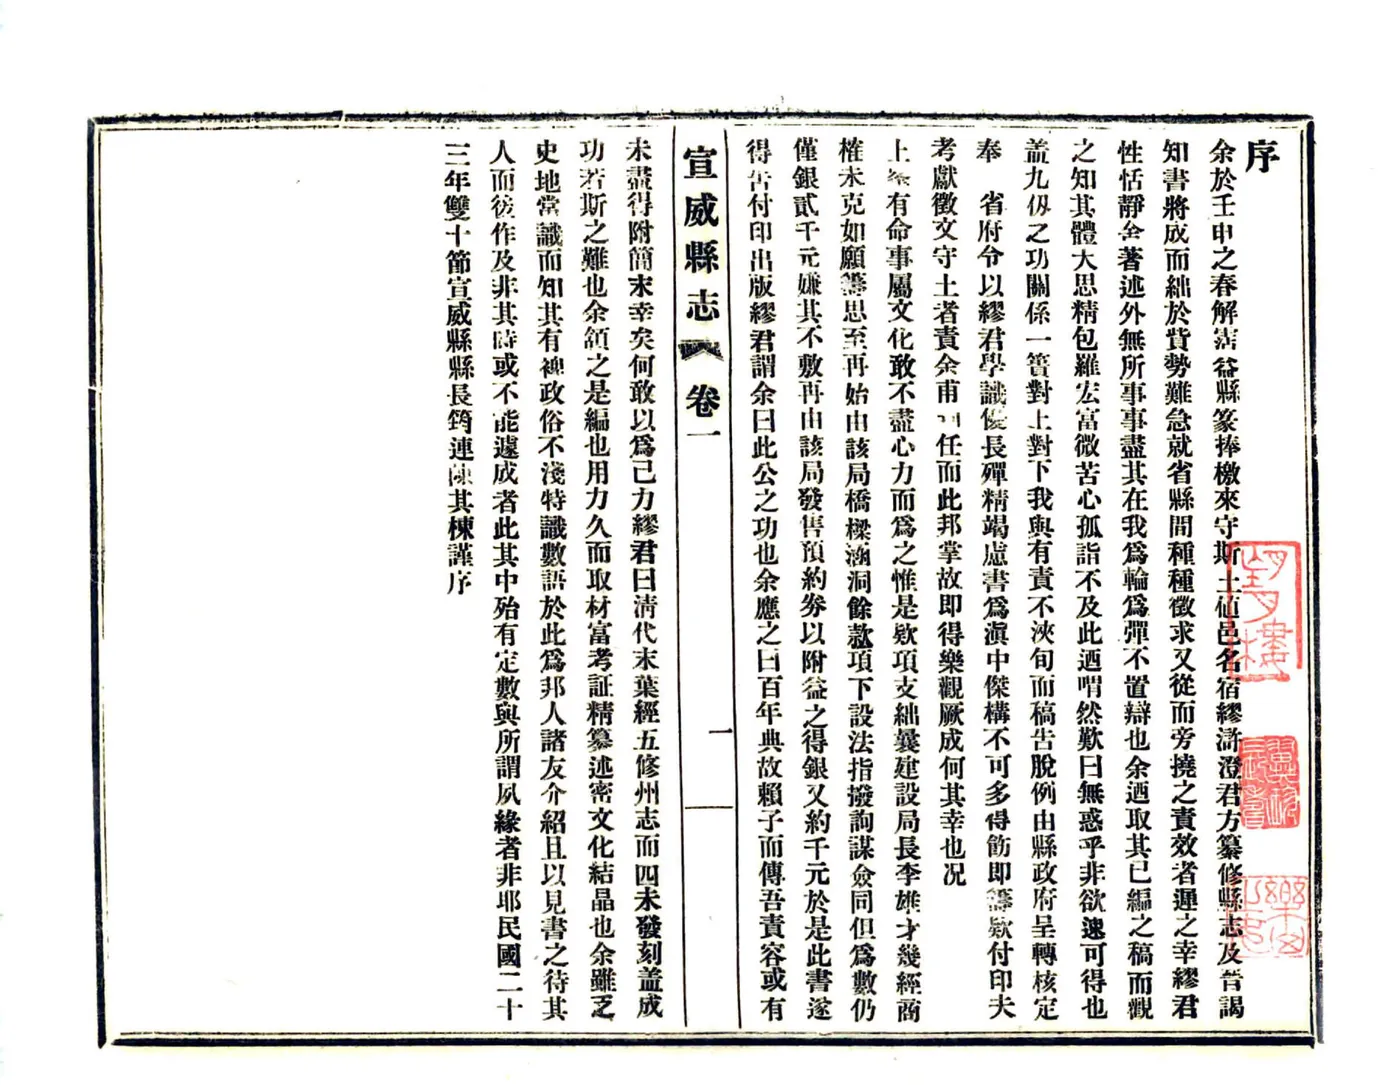 序
余於壬申之春解霑益縣篆捧檄來守斯土值邑名宿繆澣澄君方纂修縣志及晉謁
知書將成而絀於貲勢難急就省縣間種種徵求又從而旁撓之責效者遲之幸繆君
性恬靜舍著述外無所事事盡其在我爲輪爲彈不置辯也余迺取其已編之稿而觀
之知其體大思精包羅宏富微苦心孤詣不及此迺喟然歎曰無惑乎非欲速可得也
盖九仞之功關係一簣對上對下我與有責不浹旬而稿告脫例由縣政府呈轉核定
奉 省府令以繆君學識優長殫精竭慮書爲滇中傑構不可多得飭即籌欵付印夫
考獻徵文守土者責余甫 任而此邦掌故即得樂觀厥成何其幸也况
上 有命事屬文化敢不盡心力而爲之惟是欵項支絀曩建設局長李雄才幾經商
榷未克如願籌思至再始由該局橋樑涵洞餘款項下設法指撥詢謀僉同但爲數仍
僅銀貳千元嫌其不敷再由該局發售預約劵以附益之得銀又約千元於是此書遂
得告付印出版繆君謂余曰此公之功也余應之曰百年典故賴子而傳吾責容或有
宣威縣志 卷一 一
未盡得附簡末幸矣何敢以爲己力繆君曰淸代末葉經五修州志而四未發刻盖成
功若斯之難也余頷之是編也用力久而取材富考証精纂述密文化結晶也余雖乏
史地常識而知其有裨政俗不淺特識數語於此爲邦人諸友介紹且以見書之待其
人而後作及非其時或不能遽成者此其中殆有定數與所謂夙緣者非耶民國二十
三年雙十節宣威縣縣長筠連陳其棟謹序